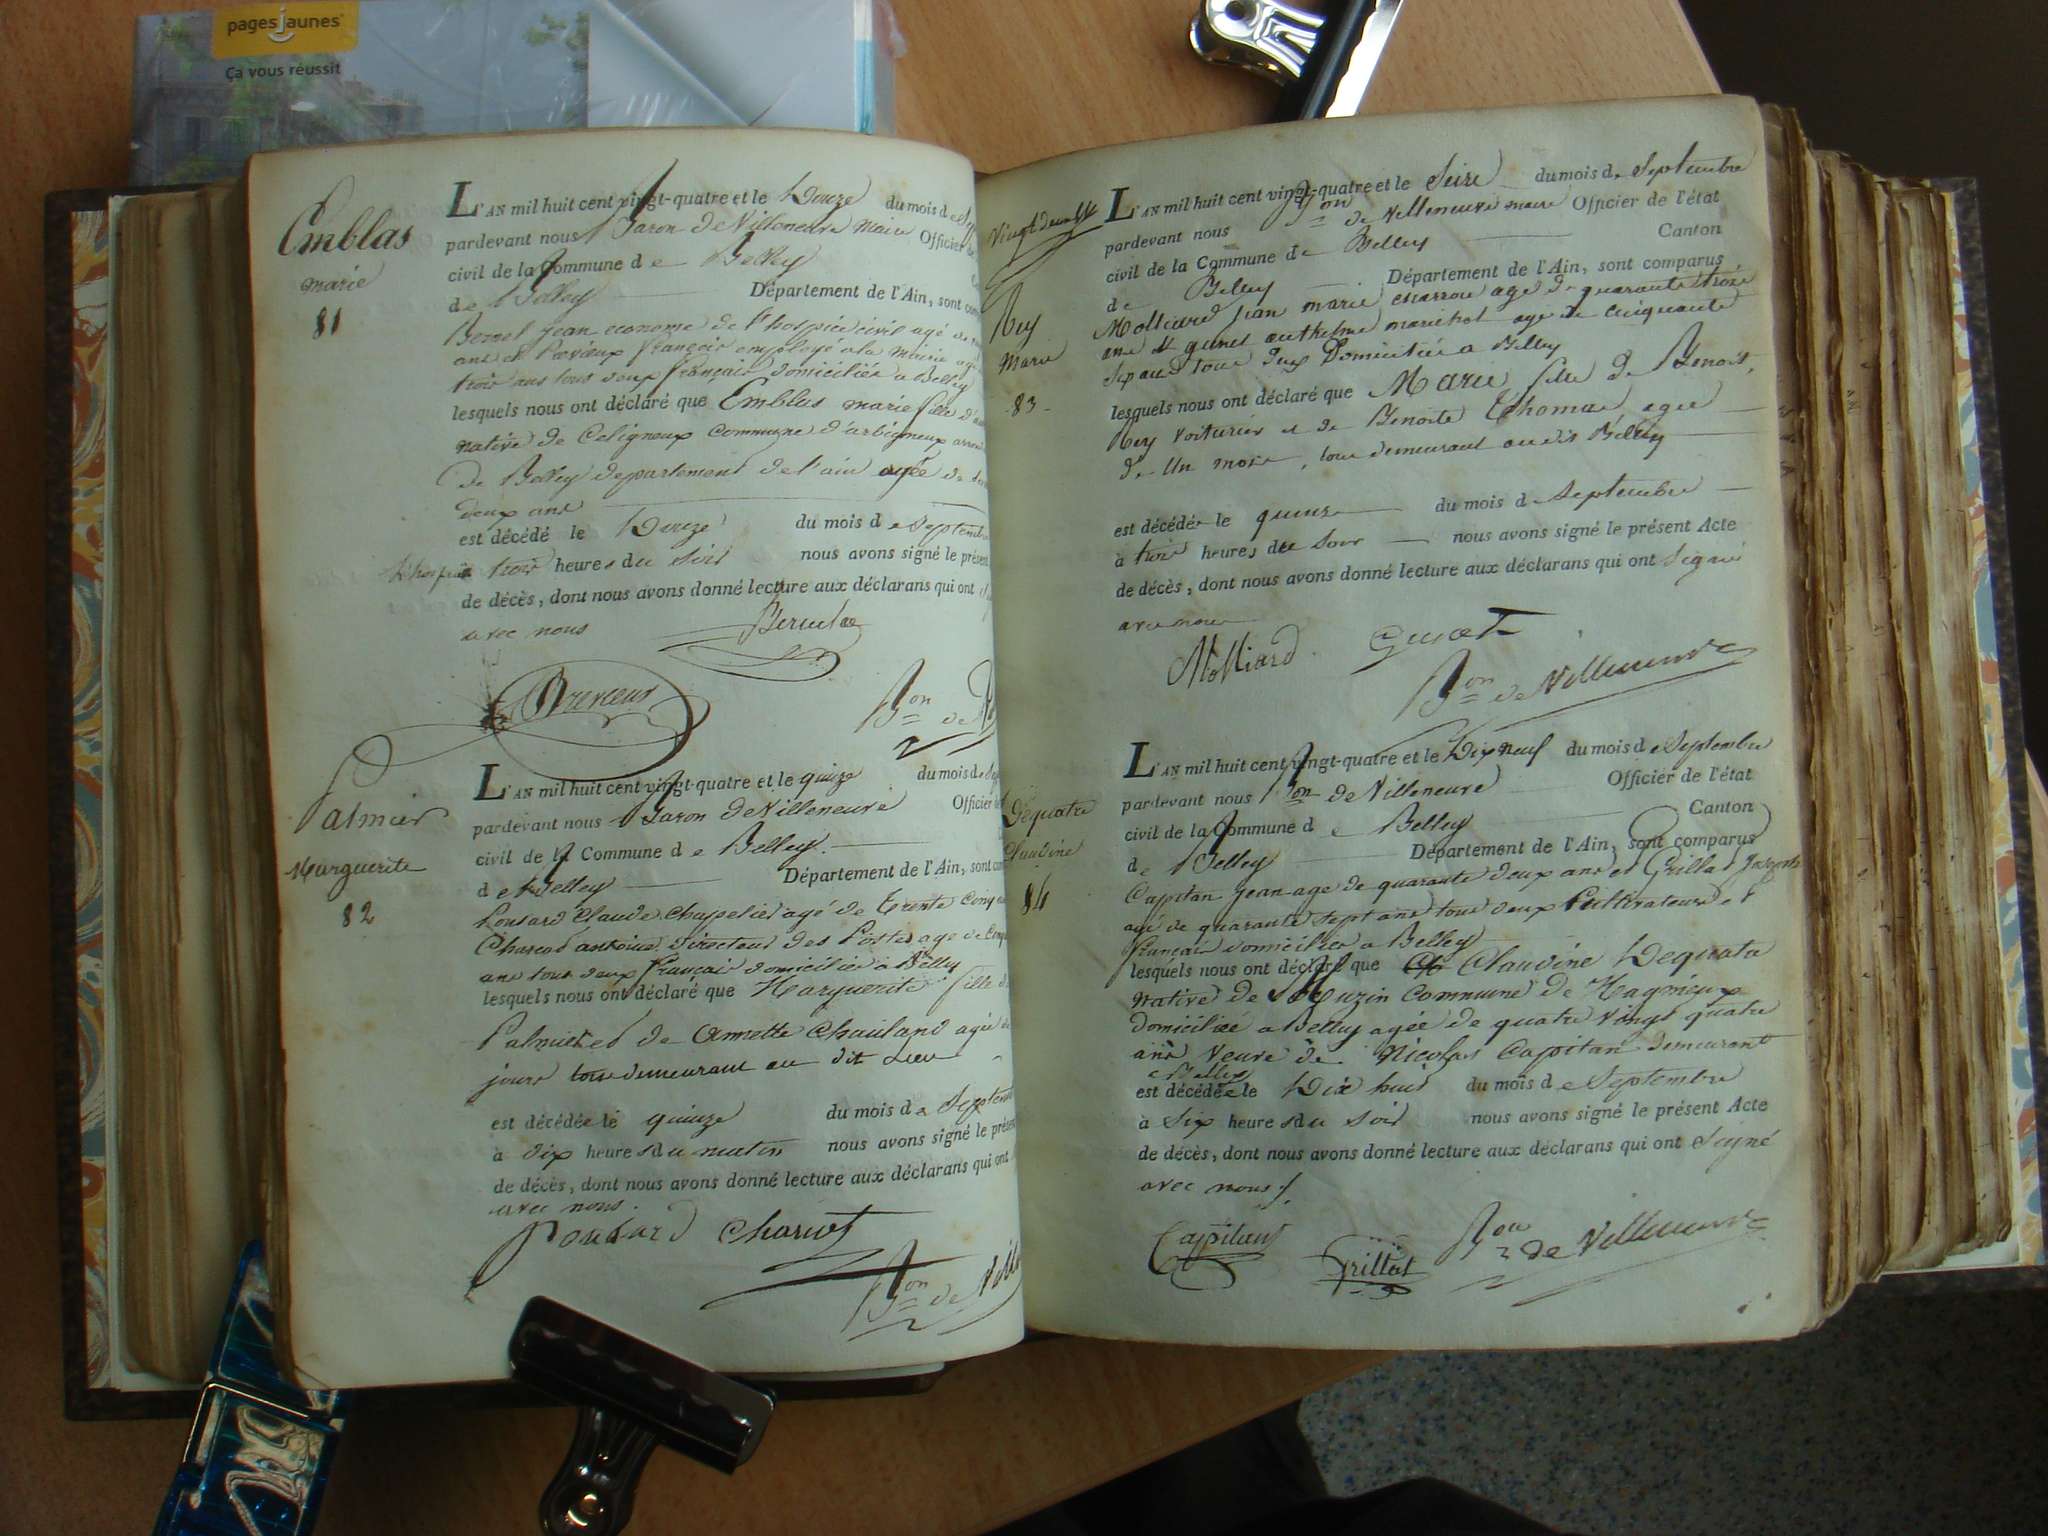 pagesjaunes
Ça vous réussit
Emblas
marie
81
L'AN mil huit cent vingt-quatre et le Douze du mois de
pardevant nous Baron de Villeneuve Maire Officier
civil de la Commune de Belley
de Belley Département de l'Ain, sont
jean econome de l'hospice civil agé de
ans et françois employé a la mairie agé
trois ans tous deux français domiciliés a Belley
lesquels nous ont déclaré que Emblas marie fille
native de Celigneux Commune d'arbigneux
De Belley departement de l'ain agée de
deux ans
est décédé le Douze du mois de Septembre
trois heures du soir nous avons signé le présent
de décès, dont nous avons donné lecture aux déclarans qui ont
avec nous
Bon de
Palmier
Marguerite
82
L'AN mil huit cent vingt-quatre et le quinze du mois de
pardevant nous Baron de Villeneuve
civil de la Commune de Belley.
de Belley Département de l'Ain, sont
Ponsard Claude Chapelier agé de Trente Cinq
antoine Directeur Des Postes age de
ans tous deux français domiciliés à Belley
lesquels nous ont déclaré que Marguerite fille de
Palmier et de Annette agée de
jours tous demeurant au dit Lieu
est décédée le quinze du mois de Septembre
à dix heures du matin nous avons signé le présent
de décès, dont nous avons donné lecture aux déclarans qui ont
avec nous.
Ponsard Charcot
Bon de
Rey
Marie
83
L'AN mil huit cent vingt-quatre et le Seize du mois de Septembre
pardevant nous Bon de Villeneuve maire Officier de l'état
civil de la Commune de Belley Canton
de Belley Département de l'Ain, sont comparus
jean marie charron age de quarante trois
ans et anthelme maréchal age de cinquante
Sept ans tous deux Domiciliés a Belley
lesquels nous ont déclaré que Marie fille de Benoit
Rey Voiturier et de Benoite Thomas, agée
de Un mois, tous demeurant au dit Belley
est décédée le quinze du mois de Septembre
à trois heures du Soir nous avons signé le présent Acte
de décès, dont nous avons donné lecture aux déclarans qui ont Signé
avec nous
Molliard
Bon de Villeneuve
Dequatre
Claudine
84
L'AN mil huit cent vingt-quatre et le Dix neuf du mois de Septembre
pardevant nous Bon de Villeneuve Officier de l'état
civil de la Commune de Belley Canton
de Belley Département de l'Ain, sont comparus
Capitan jean age de quarante deux ans et Grillat Joseph
agé de quarante Sept ans tous deux Cultivateurs et
français domiciliés a Belley
lesquels nous ont déclaré que Claudine Dequatre
native de Muzin Commune de Magnieux
domiciliée a Belley agée de quatre vingt quatre
ans Veuve de Nicolas Capitan demeurant
a Belley
est décédée le Dix huit du mois de Septembre
à Six heures du soir nous avons signé le présent Acte
de décès, dont nous avons donné lecture aux déclarans qui ont Signé
avec nous
Capitan Grillat Bon de Villeneuve